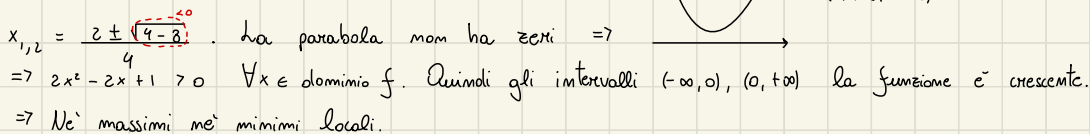 x₁,₂ = (2 ± √(4 - 8))/4 <0 . La parabola non ha zeri =>
=> 2x² - 2x + 1 > 0 ∀x ∈ dominio f. Quindi gli intervalli (-∞, 0), (0, +∞) la funzione è crescente.
=> Ne' massimi ne' minimi locali.